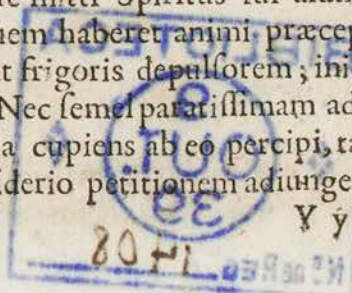 Spiritus sui
nem haberet animi præcep
t frigoris depulsorem; ini
Nec semel paratissimam ad
a cupiens ab eo percipi, ra
iderio petitionem adiunge
Y y
BIBLIOTECA
9
OUT
93
Nº DE REG
1408